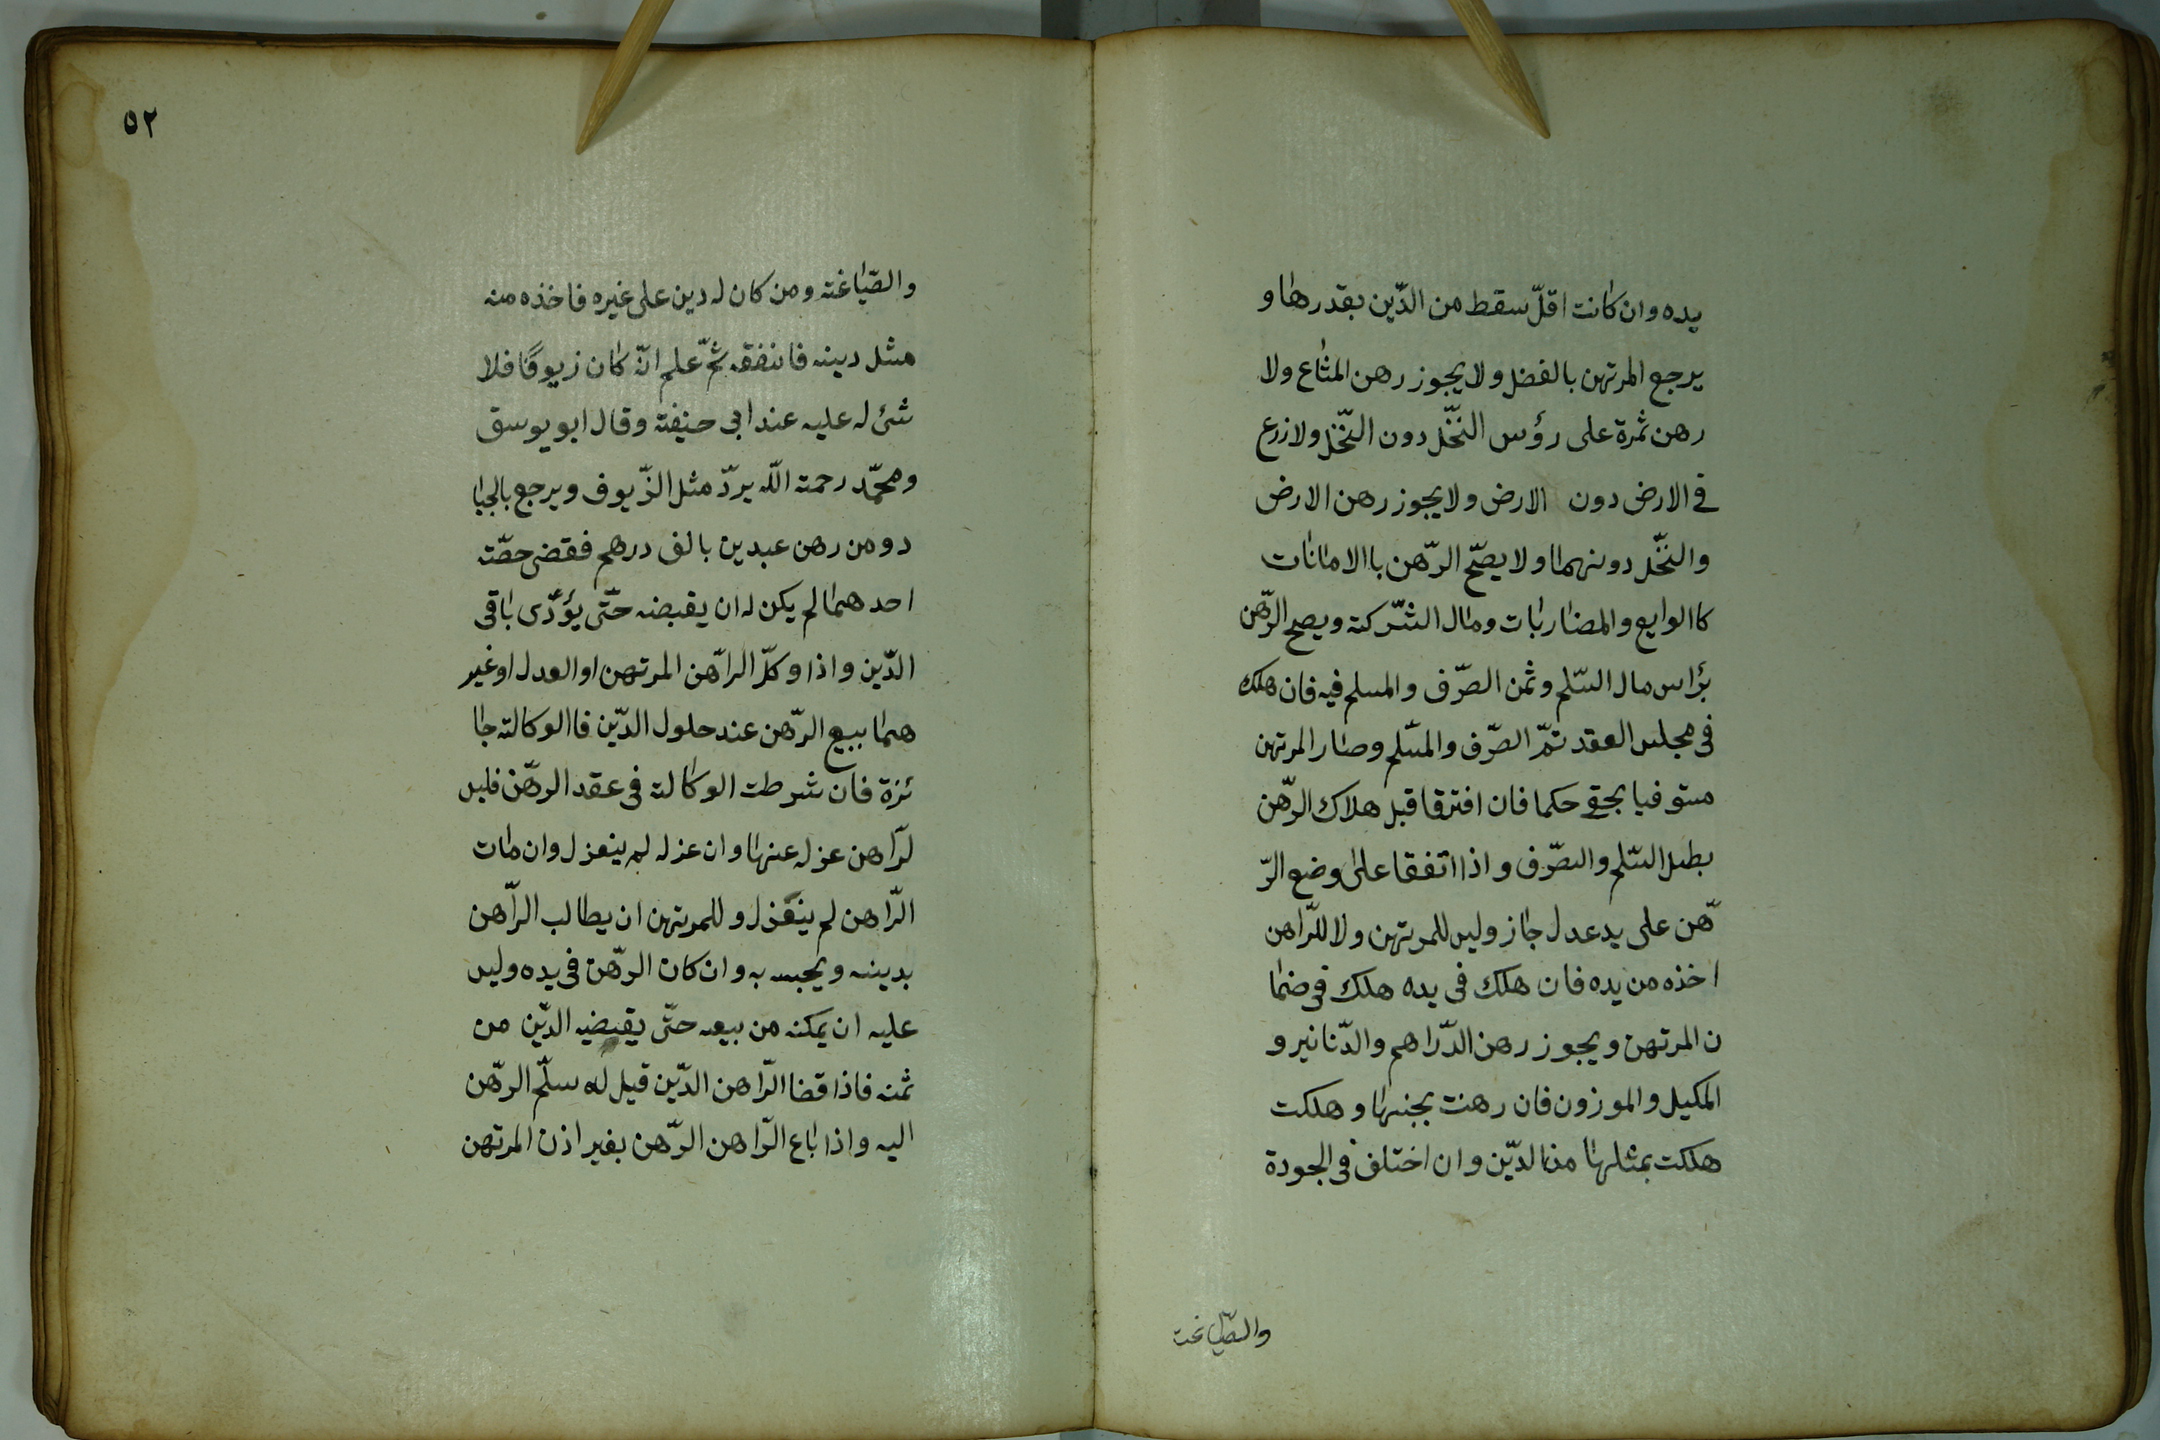 يده وان كانت اقلّ سقط من الدّين بقدرها و
يرجع المرتهن بالفضل ولا يجوز رهن المثاع ولا
رهن ثمرة على رؤس النّخل دون النّخل ولا زرع
في الارض دون الارض ولا يجوز رهن الارض
والنّخل دونهما ولا يصحّ الرّهن باالامانات
كاالوايع والمضاربات ومال الشّركة ويصح الرّهن
برٔاس مال السّلم وثمن الصّرف والمسلم فيه فان هلك
فى مجلس العقد تمّ الصّرف والسّلم وصار المرتهن
مستوفيا بحقه حكما فان افترقا قبل هلاك الرّهن
بطل السّلم والصّرف واذا اتفقا على وضع الرّ
ّهن على يد عدل جاز وليس للمرتهن ولا للرّاهن
اخذه من يده فان هلك فى يده هلك فى ضما
ن المرتهن ويجوز رهن الدّراهم والدّنانير و
المكيل والموزون فان رهنت بجنسها وهلكت
هلكت بمثلها من الدّين وان اختلف فى الجودة
والصّياغة
٥٢
والصّياغة ومن كان له دين على غيره فاخذه منه
مثل دينه فانفقه ثمّ علم انّه كان زيوفًا فلا
شئ له عليه عند ابى حنيفة وقال ابو يوسق
ومحمّد رحمة اللّه يردّ مثل الزّيوف ويرجع بالجيا
د ومن رهن عبدين بالف درهم فقضى حصّة
احدهما لم يكن له ان يقبضه حتّى يؤدّى باقى
الدّين واذا وكلّ الرّاهن المرتهن او العدل او غير
هما ببيع الرّهن عند حلول الدّين فاالوكالة جا
ئزة فان شرطت الوكالة فى عقد الرهّن فليس
لرّاهن عزله عنها وان عزله لم ينعزل وان مات
الرّاهن لم ينعزل وللمرتهن ان يطالب الرّاهن
بدينه ويحبسه به وان كان الرّهن فى يده وليس
عليه ان يمكنه من بيعه حتّى يقبضه الدّين من
ثمنه فاذا قضا الرّاهن الدّين قيل له سلّم الرّهن
اليه واذا باع الرّاهن الرّهن بغير اذن المرتهن